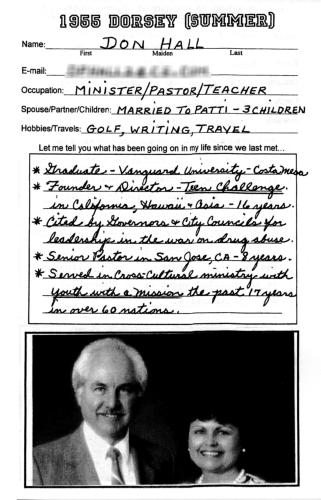 1955 DORSEY (SUMMER)
Name: DON HALL
First Maiden Last
E-mail:
Occupation: MINISTER/PASTOR/TEACHER
Spouse/Partner/Children: MARRIED TO PATTI - 3 CHILDREN
Hobbies/Travels: GOLF, WRITING, TRAVEL
Let me tell you what has been going on in my life since we last met...
* Graduate - Vanguard University - Costa Mesa
* Founder & Director - Teen Challenge
in California, Hawaii & Asia - 16 years.
* Cited by Governors & City Councils for
leadership in the war on drug abuse.
* Senior Pastor in San Jose, CA - 8 years.
* Served in Cross Cultural ministry with
Youth with a Mission the past 17 years
in over 60 nations.